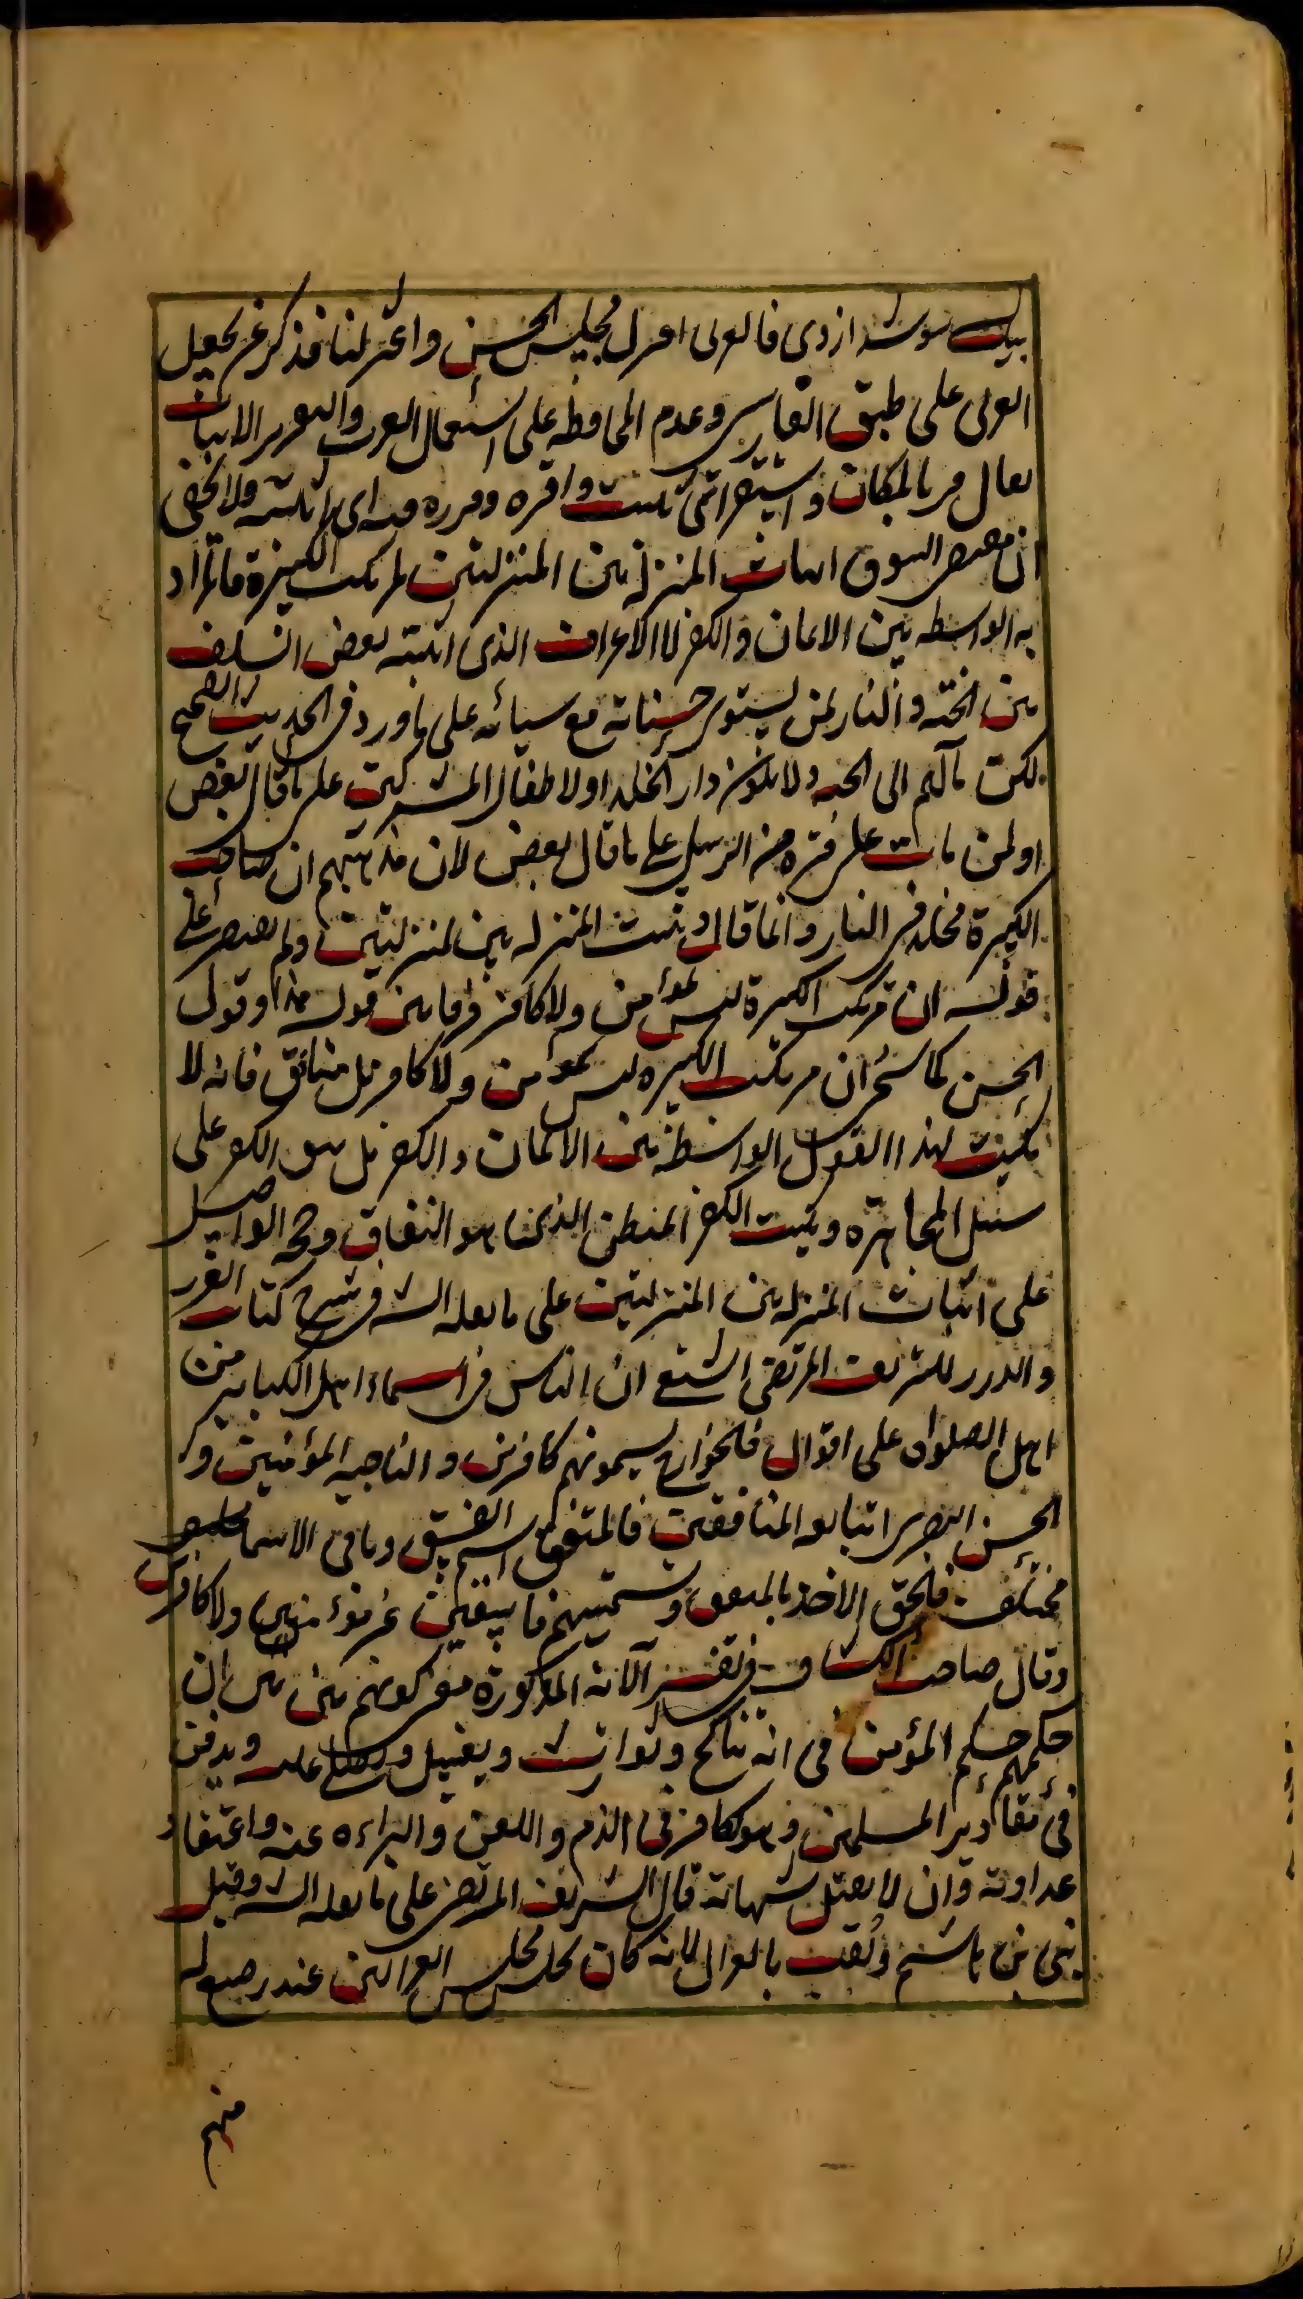 فالعربى اعتزل مجلس الحسن واعتزلنا فذكر عن يجعل
العربى على طبق الفارسى وعدم المحافظة على استعمال العرب والتقرير الاثبات
يقال قر بالمكان واستقر اى ثبت واقره وقرره فيه اى اثبته ولا يخفى
ان مقتضى السوق اثبات المنزلة بين المنزلتين لمرتكب الكبيرة فالمراد
به الواسطه بين الايمان والكفر لا الاعراف الذى اثبته بعض السلف
بين الجنه والنار لمن يستوى حسناته مع سيائه على ما ورد فى الحديث الصحيح
لكن مآلهم الى الجنه ولا يكون دار الخلد او لاطفال المشركين على ما قال بعض
او لمن مات على فترة من الرسل على ما قال بعض لان مذهبهم ان صاحب
الكبيرة مخلد فى النار وانما قال وثبت المنزله بين المنزلتين ولم يقتصر على
قوله ان مرتكب الكبيرة ليس بمؤمن ولا كافر فرقا بين قوله هذا وقول
الحسن كما سيجئ ان مرتكب الكبيره ليس بمؤمن ولا كافر بل منافق فانه لا
يثبت لهذا القول الواسطة بين الايمان والكفر بل هو الكفر على
سبيل المجاهره ويثبت الكفر المبطن الذى هنا هو النفاق وحجه الواصل
على اثبات المنزله بين المنزلتين على ما نقله الش فى شرح كتاب الغرر
والدرر للشريف المرتضى الشيعى ان الناس فى اسماء اهل الكباير من
اهل الصلوة على اقوال فالخوارج يسمونهم كافرين والناجيه المؤمنين و
الحسن البصرى اتباعه المنافقين فالمتفق اسم الفسق وباقى الاسما
مختلف فالحق الاخذ بالمتفق وتسميتهم فاسقين غير مؤمنين ولا كافرين
وقال صاحب الكشاف فى تفسير الآية المذكورة معنى كونهم بين بين ان
حكمهم حكم المؤمن فى انه يناكح ويوارث ويغسل ويصلى عليه ويدفن
فى مقابر المسلمين وهو كافر فى الذم واللعن والبراءه عنه واعتقاد
عداوته وان لا يقبل شهادته قال الشريف المرتضى على ما نقله الش وقيل
بنى هاشم ولقب بالغزال لانه كان يجلس مجلس الغزالين عند رضيع له
منهم